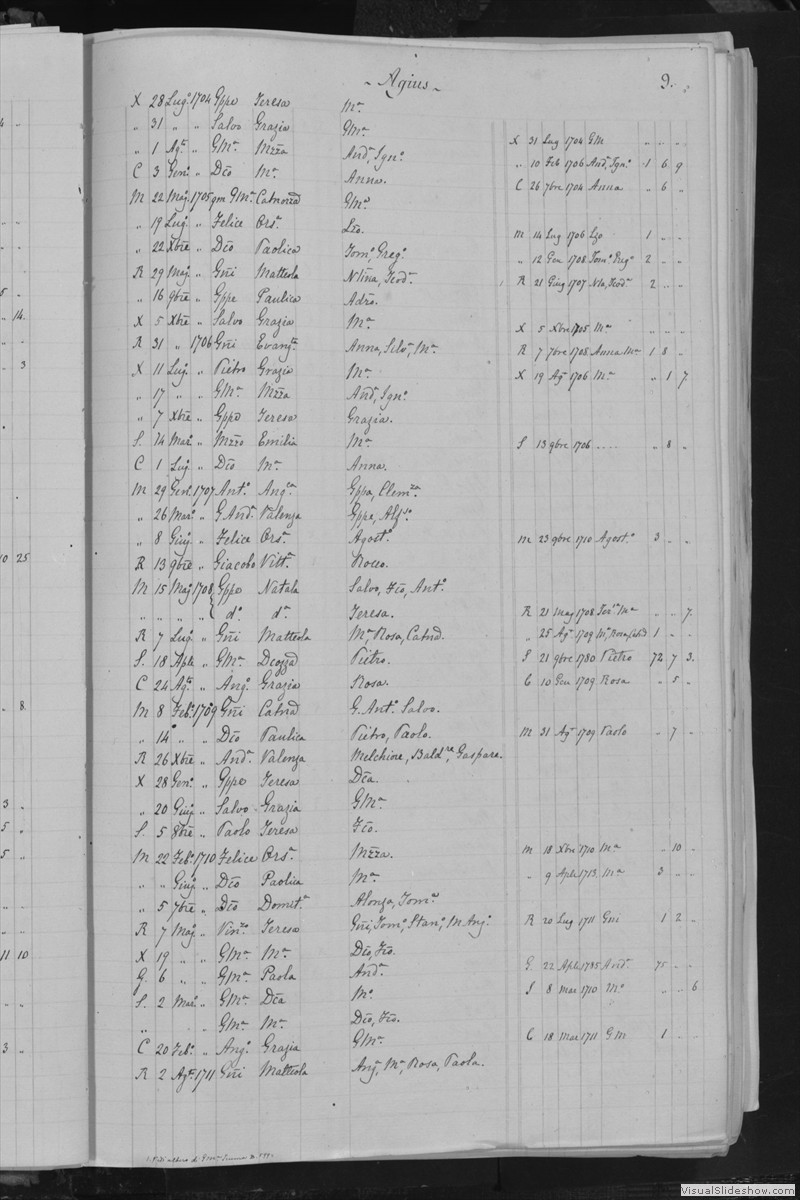 ~ Agius ~ 9.
X 28 Lugº 1704 Gppe Teresa Mª
„ 31 „ „ Salvo Grazia GMª X 31 Lug 1704 GM „ „ „
„ 1 Agº „ GMª Mzza Andª, Ignº „ 10 Feb 1706 Andª, Ignº 1 6 9
C 3 Genº „ Dco Mª Anna. C 26 7bre 1704 Anna „ 6 „
M 22 Magº 1705 GMª GMª
„ 19 Lugº „ Felice Orsª Lzo. M 14 Lug 1706 Lzo 1 „ „
„ 22 Xbre „ Dco Paolica Tomº, Gregº „ 12 Gen 1708 Tomº 2 „ „
R 29 Magº „ Gñi Matteola R 21 Giug 1707 2 „ „
„ 16 9bre „ Gppe Paulica
X 5 Xbre „ Salvo Grazia Mª X 5 Xbre 1705 Mª „ „ „
R 31 „ 1706 Gñi Evangª Anna, Silvª, Mª R 7 7bre 1708 Anna Mª 1 8 „
X 11 Lugº „ Pietro Grazia Mª X 19 Agº 1706 Mª „ 1 7
„ 17 „ „ GMª Mzza Andª, Ignº
„ 7 Xbre „ Gppe Teresa Grazia.
S. 14 Marº „ Mzzo Emilia Mª S 13 9bre 1706 .... „ 8 „
C 1 Lug „ Dco Mª Anna.
M 29 Genº 1707 Antº Angª Gppa, Clemza
„ 26 Marº „ G. Andª Valenza Gppe, Alfso
„ 8 Giugº „ Felice Orsª Agostº M 23 9bre 1710 Agostº 3 „ „
R 13 9bre „ Giacobo Vittª Rocco.
M 15 Magº 1708 Gppe Natala Salvo, Fco, Antº
„ „ „ „ { dº dª Teresa. R 21 Mag 1708 Terª Mª „ „ 7.
R 7 Lugº „ Gñi Matteola Mª, Rosa, Catnd. „ 25 Agº 1709 Mª, Rosa, Catnd 1 „ „
S. 18 Aple „ GMª Pietro. S 21 9bre 1780 Pietro 72 7 3.
C 24 Agº „ Angº Grazia Rosa. C 10 Gen 1709 Rosa „ 5 „
M 8 Febº 1709 Gñi Catnd G. Antº Salvo.
„ 14 „ „ Dco Paulica Pietro, Paolo. M 31 Agº 1709 Paolo „ 7 „
R 26 Xbre „ Andª Valenza Melchiore, Baldre, Gaspare.
X 28 Genº „ Gppe Teresa Dca.
„ 20 Giugº „ Salvo Grazia GMª
S. 5 8bre „ Paolo Teresa Fco.
M 22 Febº 1710 Felice Orsª Mzza. M 18 Xbre 1710 Mª „ 10 „
„ „ Giugº „ Dco Paolica Mª „ 9 Aple 1713 Mª 3 „ „
„ 5 7bre „ Dco Domitª Alonza, Tomª
R 7 Magº „ Vinzº Teresa Gñi, Tomº, Stanº, M Angº R 20 Lug 1711 Gni 1 2 „
X 19 „ „ GMª Mª Dco, Fco.
G. 6 „ „ GMª Paola Andª G. 22 Aple 1735 Andª 75 „ „
S. 2 Marº „ GMª Dca Mº S 8 Mar 1710 Mº „ „ 6
„ GMª Mª Dco, Fco.
C 20 Febº „ Angº Grazia GMª C 18 Mar 1711 GM 1 „ „
R 2 Agº 1711 Gñi Matteola Angª, Mª, Rosa, Paola.
4 „
„ „
5 „
„ 14
„ 3
10 25
„ 8
3 „
5 „
5 „
11 10
3 „
VisualSlideshow.com